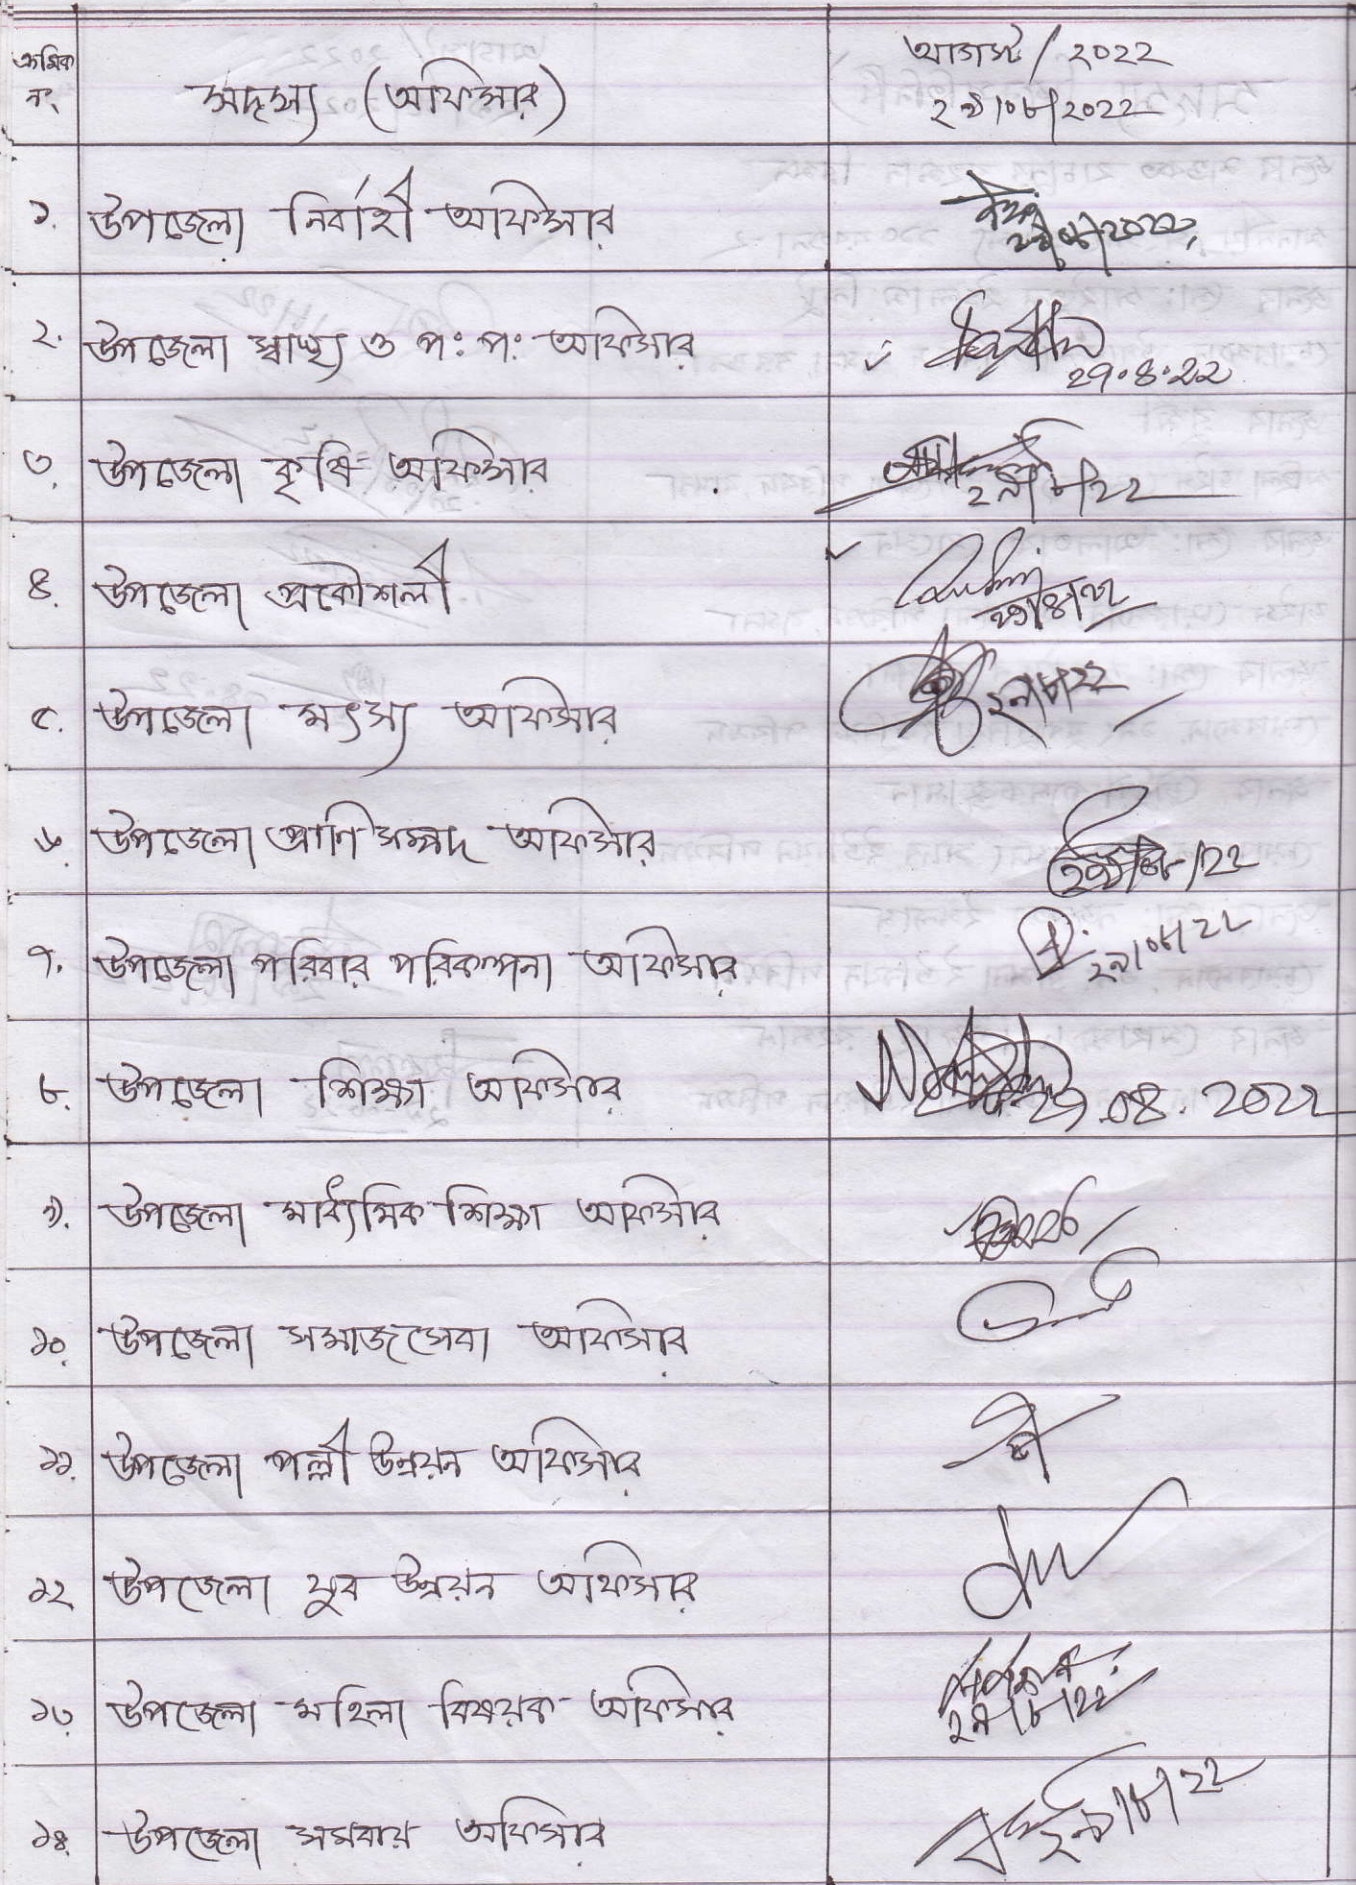 ক্রমিক নং
সদস্য (অফিসার)
আগস্ট/২০২২
২৯/০৮/২০২২
১. উপজেলা নির্বাহী অফিসার
২৯/০৮/২০২২
২. উপজেলা স্বাস্থ্য ও প: প: অফিসার
২৭.৪.২২
৩. উপজেলা কৃষি অফিসার
২৯/৮/২২
৪. উপজেলা প্রকৌশলী
৫. উপজেলা মৎস্য অফিসার
২৯/৮/২২
৬. উপজেলা প্রাণিসম্পদ অফিসার
৭. উপজেলা পরিবার পরিকল্পনা অফিসার
২৯/০৮/২২
৮. উপজেলা শিক্ষা অফিসার
29.08.2022
৯. উপজেলা মাধ্যমিক শিক্ষা অফিসার
১০. উপজেলা সমাজসেবা অফিসার
১১. উপজেলা পল্লী উন্নয়ন অফিসার
১২ উপজেলা যুব উন্নয়ন অফিসার
১৩. উপজেলা মহিলা বিষয়ক অফিসার
২৯/৮/২২
১৪. উপজেলা সমবায় অফিসার
২৯/৮/২২